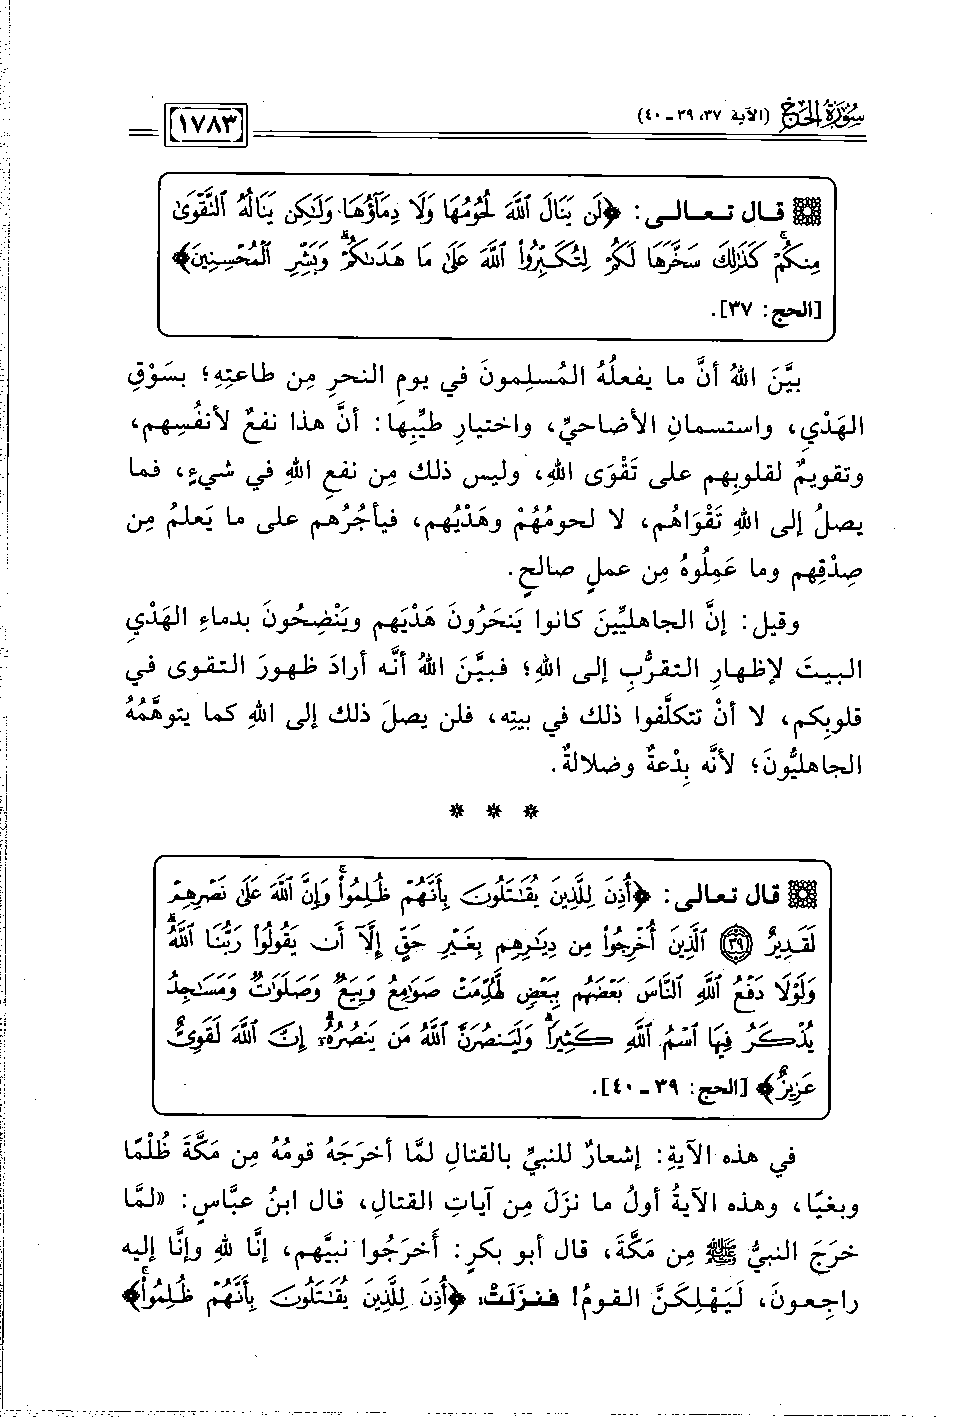 سُورَةُ الحَجِّ (الآية ٣٧، ٣٩ ـ ٤٠)
١٧٨٣
قال تعالى: ﴿لَن يَنَالَ ٱللَّهَ لُحُومُهَا وَلَا دِمَآؤُهَا وَلَٰكِن يَنَالُهُ ٱلتَّقْوَىٰ
مِنكُمْۚ كَذَٰلِكَ سَخَّرَهَا لَكُمْ لِتُكَبِّرُوا۟ ٱللَّهَ عَلَىٰ مَا هَدَىٰكُمْۗ وَبَشِّرِ ٱلْمُحْسِنِينَ﴾
[الحج: ٣٧].
بيَّنَ اللهُ أنَّ ما يفعلُهُ المُسلِمونَ في يومِ النحرِ مِن طاعتِهِ؛ بسَوْقِ
الهَدْيِ، واستسمانِ الأضاحيِّ، واختيارِ طيِّبِهَا: أنَّ هذا نفعٌ لأنفُسِهم،
وتقويمٌ لقلوبِهم على تَقْوَى اللهِ، وليس ذلك مِن نفعِ اللهِ في شيءٍ، فما
يصلُ إلى اللهِ تَقْوَاهُم، لا لحومُهُمْ وهَدْيُهم، فيأجُرُهم على ما يَعلمُ مِن
صِدْقِهم وما عَمِلُوهُ مِن عملٍ صالحٍ.
وقيل: إنَّ الجاهليِّينَ كانوا يَنحَرُونَ هَدْيَهم ويَنْضِحُونَ بدماءِ الهَدْيِ
البيتَ لإظهارِ التقرُّبِ إلى اللهِ؛ فبيَّنَ اللهُ أنَّه أرادَ ظهورَ التقوى في
قلوبِكم، لا أنْ تتكلَّفوا ذلك في بيتِه، فلن يصلَ ذلك إلى اللهِ كما يتوهَّمُهُ
الجاهليُّونَ؛ لأنَّه بِدْعةٌ وضلالةٌ.
* * *
قال تعالى: ﴿أُذِنَ لِلَّذِينَ يُقَٰتَلُونَ بِأَنَّهُمْ ظُلِمُوا۟ۚ وَإِنَّ ٱللَّهَ عَلَىٰ نَصْرِهِمْ
لَقَدِيرٌ ٣٩ ٱلَّذِينَ أُخْرِجُوا۟ مِن دِيَٰرِهِم بِغَيْرِ حَقٍّ إِلَّآ أَن يَقُولُوا۟ رَبُّنَا ٱللَّهُۗ
وَلَوْلَا دَفْعُ ٱللَّهِ ٱلنَّاسَ بَعْضَهُم بِبَعْضٍ لَّهُدِّمَتْ صَوَٰمِعُ وَبِيَعٌ وَصَلَوَٰتٌ وَمَسَٰجِدُ
يُذْكَرُ فِيهَا ٱسْمُ ٱللَّهِ كَثِيرًاۗ وَلَيَنصُرَنَّ ٱللَّهُ مَن يَنصُرُهُۥٓۗ إِنَّ ٱللَّهَ لَقَوِىٌّ
عَزِيزٌ﴾ [الحج: ٣٩ ـ ٤٠].
في هذه الآيةِ: إشعارٌ للنبيِّ بالقتالِ لمَّا أخرَجَهُ قومُهُ مِن مَكَّةَ ظُلْمًا
وبغيًا، وهذه الآيةُ أولُ ما نزَلَ مِن آياتِ القتالِ، قال ابنُ عبَّاسٍ: «لمَّا
خرَجَ النبيُّ ﷺ مِن مَكَّةَ، قال أبو بكرٍ: أَخرَجُوا نبيَّهم، إنَّا للهِ وإنَّا إليه
راجِعونَ، لَيَهْلِكَنَّ القومُ! فنزَلَتْ: ﴿أُذِنَ لِلَّذِينَ يُقَٰتَلُونَ بِأَنَّهُمْ ظُلِمُوا۟ۚ﴾